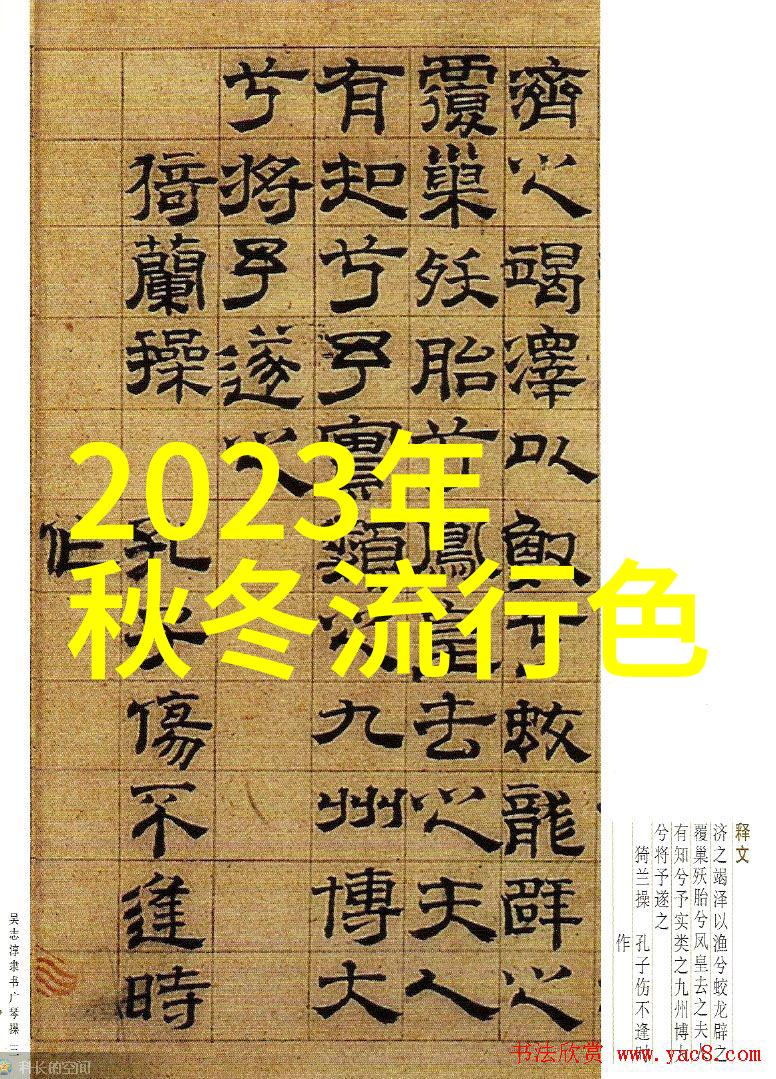 2023年
秋冬流行色
濟之竭澤以漁兮蛟龍辟之
覆巢殀胎兮鳳皇去之夫人
有知兮予實類之九州博大
兮將予遂之
猗蘭操 孔子傷不逢時
作
释文
济之竭泽以渔兮蛟龙辟之
覆巢殀胎兮凤皇去之夫人
有知兮予实类之九州博
兮将予遂之
猗兰操 孔子伤不逢时
作
吴志淳隶书广琴操 三
科长的空间
书法欣赏 www.yac8.com